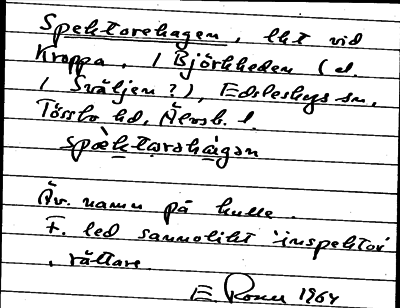 Spektorehagen, lht vid
Kroppa, i Björkheden (el.
i Sväljen?), Edsleskogs sn,
Tössbo hd, Älvsb. l.
spæ̀ktorshàgan
Äv. namn på kulle.
F. led sannolikt 'inspektor'
, rättare.
E. 1964